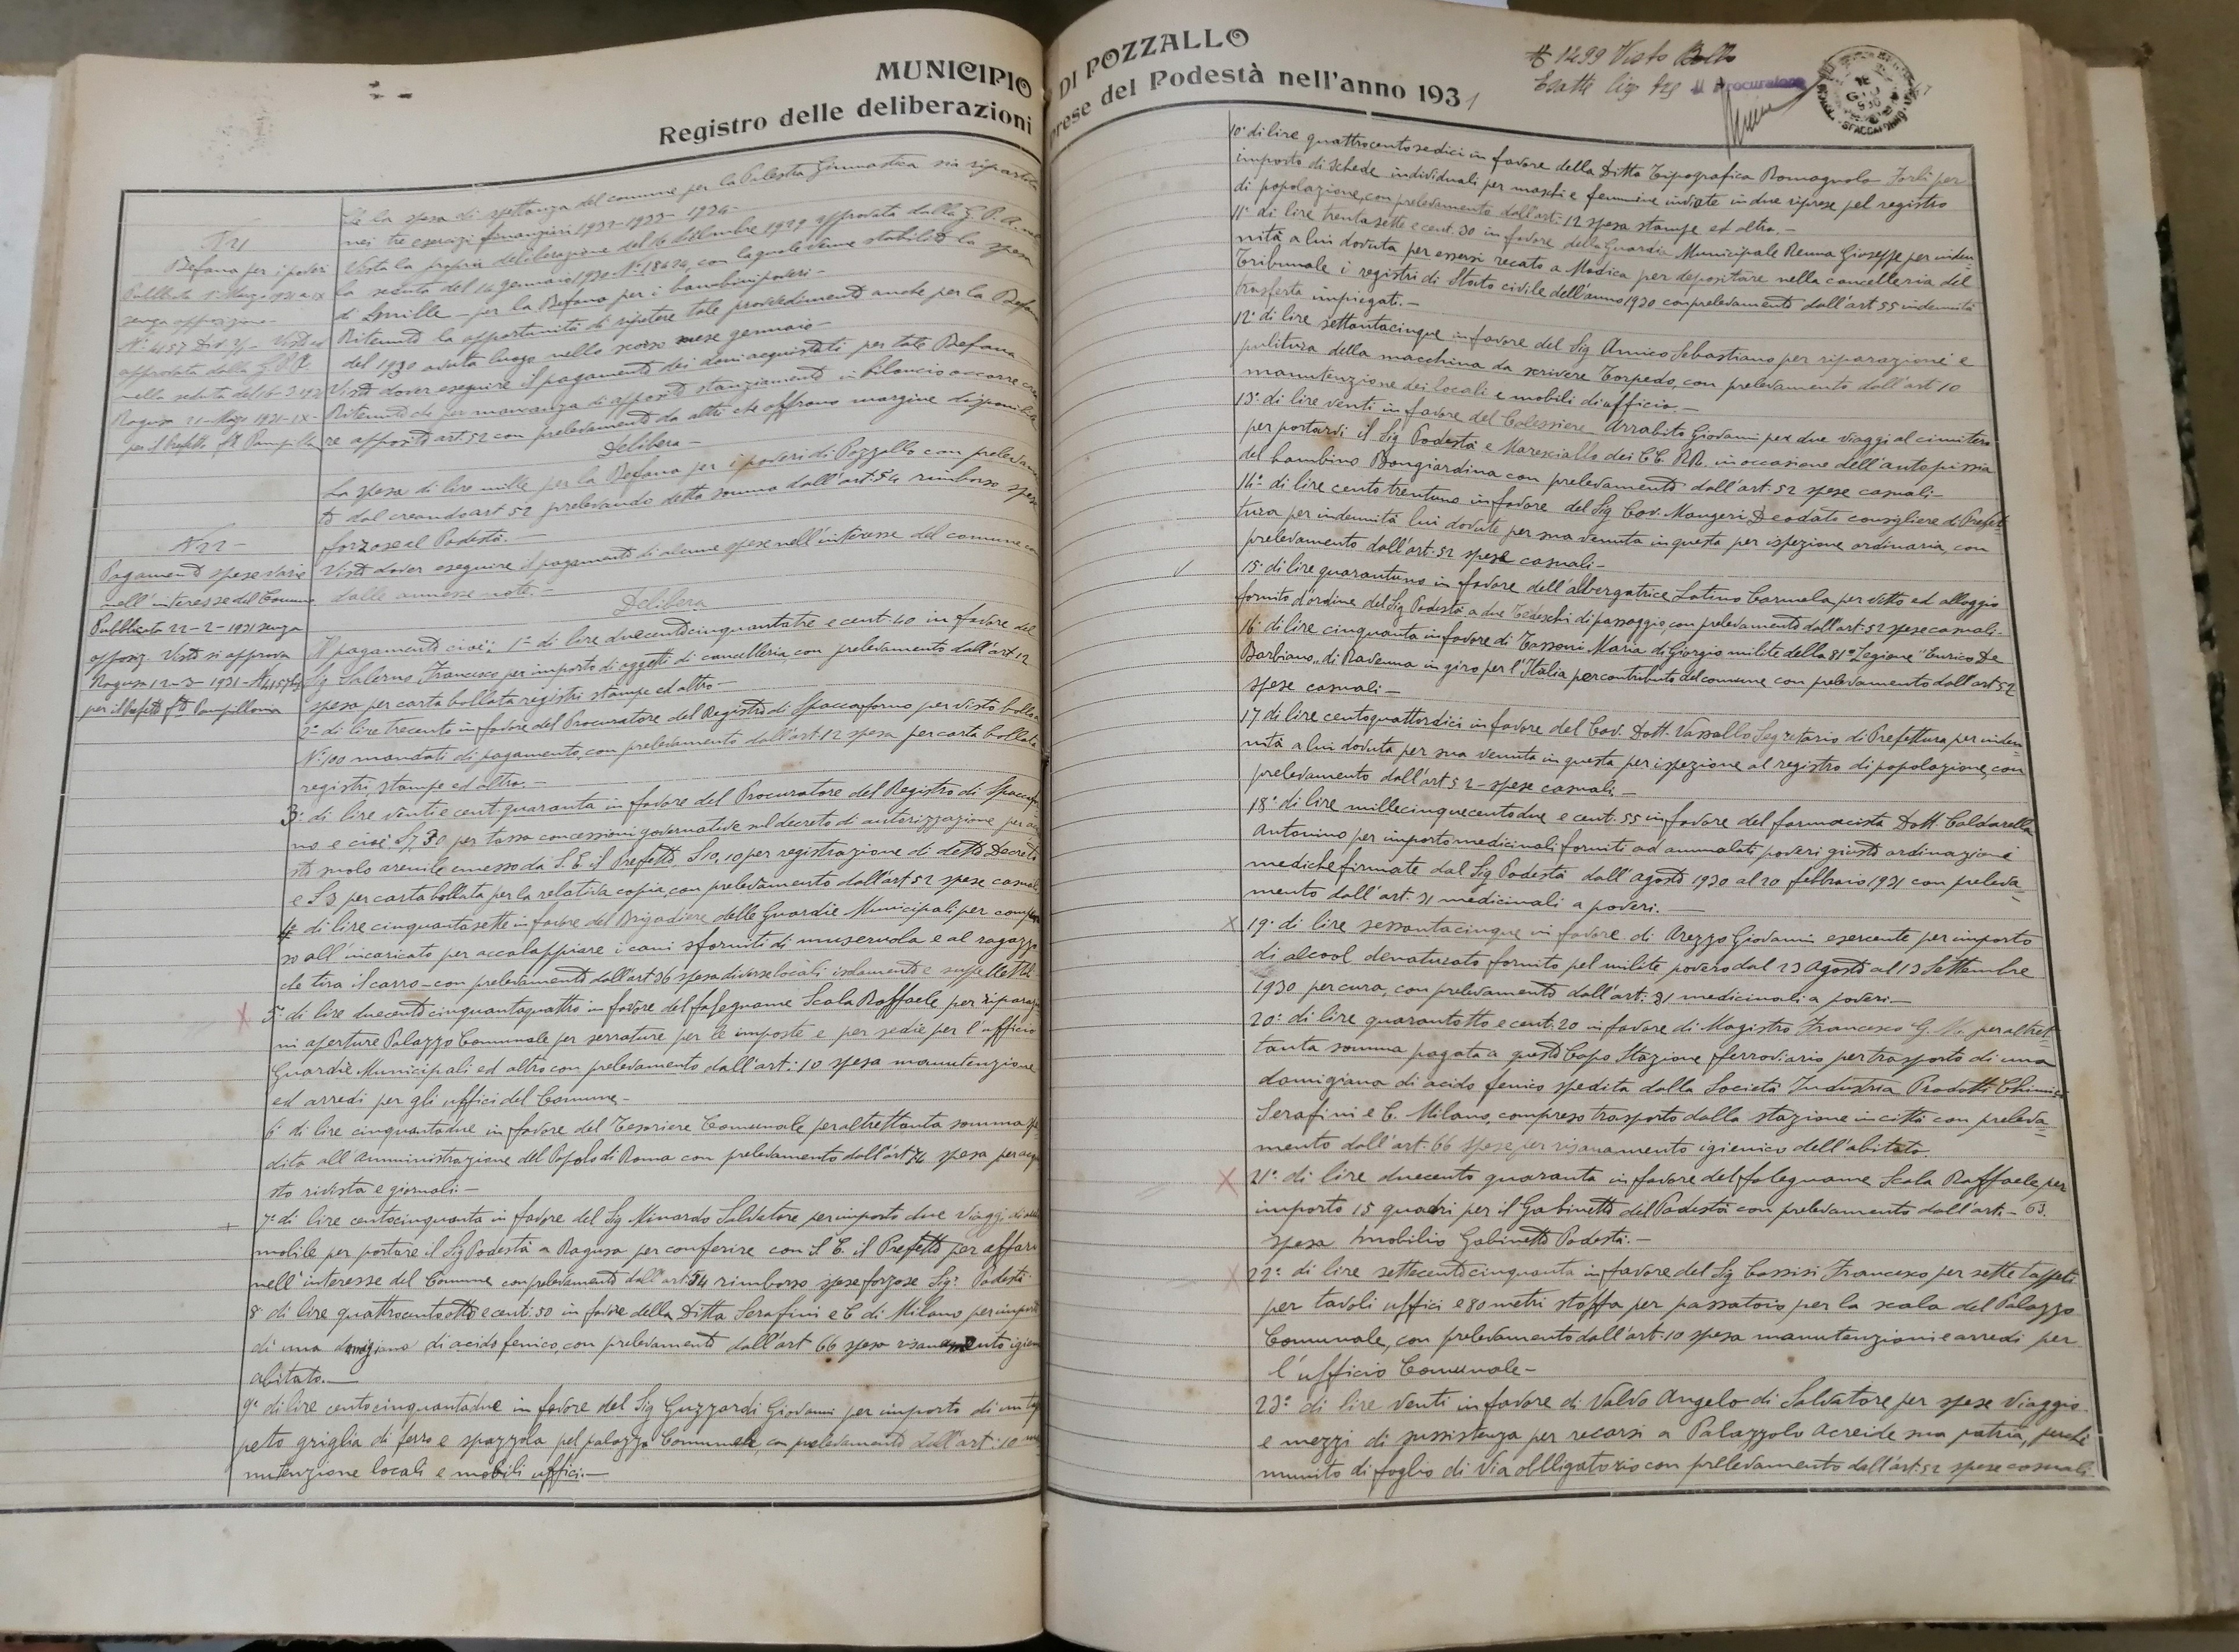 MUNICIPIO DI POZZALLO
Registro delle deliberazioni prese del Podestà nell'anno 1931
N 1499 Visto Bollo
Esatte lire tre Il Procuratore
Che la spesa di spettanza del comune per la Palestra Ginnastica sia ripartita
nei tre esercizi finanziari 1932-1933-1934-
N 21
Befana per i poveri
Pubblicata 1° Marzo 1931 a IX
senza opposizione-
N° 4157 Div. 2/- Visto ed
approvata dalla G.P.A.
nella seduta del 6-3-1931
Ragusa 21-Marzo 1931-IX-
per il Prefetto ft Pampillonia
Vista la propria deliberazione del 16 dicembre 1929 approvata dalla G. P. A. nel
la seduta del 14 gennaio 1930 N° 18424, con la quale venne stabilita la spesa
di Lmille - per la Befana per i bambini poveri-
Ritenuto la opportunità di ripetere tale provvedimento anche per la Befana
del 1930 avuta luogo nello scorso mese gennaio-
Visto dover eseguire il pagamento dei doni acquistati per tale Befana-
Ritenuto che per mancanza di apposito stanziamento in bilancio occorre crea
re apposito art. 52 con prelevamento da altri che offrono margine disponibile
Delibera-
La spesa di lire mille per la Befana per i poveri di Pozzallo con prelevamen
to dal creando art 52 prelevando detta somma dall'art: 54 rimborso spese
forzose al Podestà.-
N 22-
Pagamento spese varie
nell'interesse del Comune
Pubblicata 22-2-1931 senza
opposiz. Visto si approva
Ragusa 12-3-1931-N 4157 bis
per il Prefetto fto Pampillonia
Visto dover eseguire il pagamento di alcune spese nell'interesse del comune come
dalle annesse note.-
Delibera
Il pagamento cioè: 1° di lire duecentocinquantatre e cent. 40 in favore del
Sig Salerno Francesco per importo di oggetti di cancelleria, con prelevamento dall'art 12
spesa per carta bollata registri stampe ed altro-
2° di lire trecento in favore del Procuratore del Registro di Spaccaforno per visto bollo a
N° 100 mandati di pagamento, con prelevamento dall'art. 12 spesa per carta bollata
registri stampe ed altro.-
3° di lire venti e cent. quaranta in favore del Procuratore del Registro di Spaccafor
no e cioè L7,30 per tassa concessioni governative sul decreto di autorizzazione per acqui
sto suolo arenile emesso da S. E. il Prefetto, L10,10 per registrazione di detto Decreto
e L 3 per carta bollata per la relativa copia, con prelevamento dall'art 52 spese casuali
4° di lire cinquantasette in favore del Brigadiere delle Guardie Municipali per compen
so all'incaricato per accalappiare i cani sforniti di museruola e al ragazzo
che tira il carro-con prelevamento dall'art 36 spesa diverse locali isolamento e suppellettili-
5° di lire duecentocinquantaquattro in favore del falegname Scala Raffaele per riparazio
ni aperture Palazzo Comunale per serrature per le imposte e per sedie per l'ufficio
Guardie Municipali ed altro con prelevamento dall'art: 10 spesa manutenzione
ed arredi per gli uffici del Comune-
6° di lire cinquantadue in favore del Tesoriere Comunale per altrettanta somma spe
dita all'Amministrazione del Popolo di Roma con prelevamento dall'art 74 spesa per acqui
sto rivista e giornali-
7° di lire centocinquanta in favore del Sig Minardo Salvatore per importo due viaggi auto
mobile per portare il Sig Podestà a Ragusa per conferire con S. E. il Prefetto per affari
nell'interesse del Comune con prelevamento dall'art. 54 rimborso spese forzose Sig. Podestà
8° di lire quattrocentootto e cent: 50 in favore della Ditta Serafini e C di Milano per importo
di una damigiana di acido fenico, con prelevamento dall'art 66 spesa risanamento igien
abitato.-
9° di lire centocinquantadue in favore del Sig Guzzardi Giovanni per importo di un tap
peto griglia di ferro e spazzola pel palazzo Comunale, con prelevamento dall'art: 10 ma
nutenzione locali e mobili uffici.-
10° di lire quattrocentosedici in favore della Ditta Tipografica Romagnola Forlì per
importo di schede individuali per maschi e femmine inviate in due riprese pel registro
di popolazione, con prelevamento dall'art: 12 spesa stampe ed altro.-
11° di lire trentasette e cent. 30 in favore della Guardia Municipale Renna Giuseppe per inden-
nità a lui dovuta per essersi recato a Modica per depositare nella cancelleria del
Tribunale i registri di Stato civile dell'anno 1930 con prelevamento dall'art 55 indennità
trasferta impiegati.-
12° di lire settantacinque in favore del Sig Amico Sebastiano per riparazione e
pulitura della macchina da scrivere Torpedo, con prelevamento dall'art 10
manutenzione dei locali e mobili di ufficio.-
13° di lire venti in favore del Calessiere Arrabito Giovanni per due viaggi al cimitero
per portarvi il Sig Podestà e Maresciallo dei CC. RR. in occasione dell'autopissia
del bambino Bongiardina con prelevamento dall'art: 52 spese casuali-
14° di lire centotrentuno in favore del Sig Cav. Mangeri Deodato consigliere di Prefet-
tura per indennità lui dovute per sua venuta in questa per ispezione ordinaria, con
prelevamento dall'art. 52 spese casuali-
15° di lire quarantuno in favore dell'albergatrice Latino Carmela per vitto ed alloggio
fornito d'ordine del Sig Podestà a due Tedeschi di passaggio, con prelevamento dall'art. 52 spese casuali.
16° di lire cinquanta in favore di Tassoni Maria di Giorgio milite della 81ª Legione "Enrico De
Barbiano" di Ravenna in giro per l'Italia per contributo del comune con prelevamento dall'art 52
spese casuali-
17 di lire centoquattordici in favore del Cav. Dott. Vassallo Segretario di Prefettura per inden-
nità a lui dovuta per sua venuta in questa per ispezione al registro di popolazione, con
prelevamento dall'art 52-spese casuali-
18° di lire millecinquecentodue e cent: 55 in favore del farmacista Dott. Caldarella
Antonino per importo medicinali forniti ad ammalati poveri giusto ordinazioni
mediche firmate dal Sig Podestà dall'agosto 1930 al 20 febbraio 1931 con preleva-
mento dall'art. 31 medicinali a poveri.-
19° di lire sessantacinque in favore di Arezzo Giovanni esercente per importo
di alcool denaturato fornito pel milite povero dal 23 Agosto al 13 Settembre
1930 per cura, con prelevamento dall'art: 31 medicinali a poveri-
20° di lire quarantotto e cent. 20 in favore di Magistro Francesco G. M. per altret-
tanta somma pagata a questo Capo Stazione ferroviario per trasporto di una
damigiana di acido fenico spedita dalla Società Industria Prodotti Chimici
Serafini e C. Milano, compreso trasporto dalla stazione in città con preleva-
mento dall'art. 66 spese per risanamento igienico dell'abitato.
21° di lire duecento quaranta in favore del falegname Scala Raffaele per
importo 15 quadri per il Gabinetto del Podestà con prelevamento dall'art.- 63.
spesa Imobilio Gabinetto Podestà.-
22° di lire settecentocinquanta in favore del Sig Cassisi Francesco per sette tappeti
per tavoli uffici e 80 metri stoffa per passatoio per la scala del Palazzo
Comunale, con prelevamento dall'art. 10 spesa manutenzioni e arredi per
l'ufficio Comunale-
23° di lire venti in favore di Valvo Angelo di Salvatore per spese viaggio
e mezzi di sussistenza per recarsi a Palazzolo Acreide sua patria, perchè
munito di foglio di via obbligatorio con prelevamento dall'art. 52 spese casuali